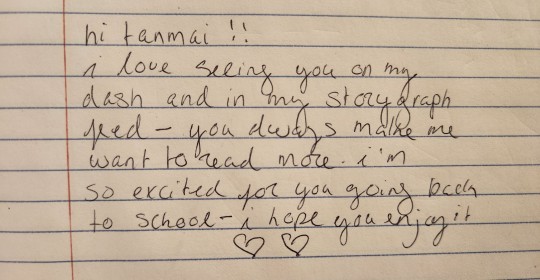 hi tanmai !!
i love seeing you on my
dash and in my storygraph
feed - you always make me
want to read more. i'm
so excited for you going back
to school - i hope you enjoy it
♡ ♡